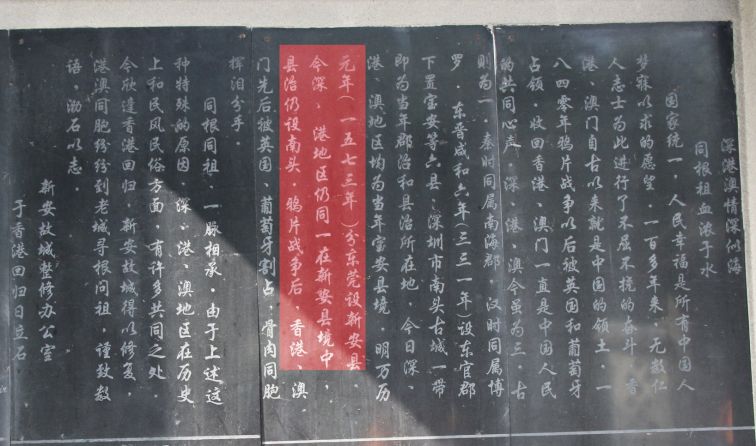 深港澳情深似海
同根祖血浓于水
国家统一，人民幸福是所有中国人
梦寐以求的愿望。一百多年来，无数仁
人志士为此进行了不屈不挠的奋斗。香
港、澳门自古以来就是中国的领土，一
八四零年鸦片战争以后被英国和葡萄牙
占领，收回香港、澳门一直是中国人民
的共同心声。深、港、澳今虽为三，古
则为一，秦时同属南海郡，汉时同属博
罗，东晋咸和六年（三三一年）设东官郡
下置宝安等六县，深圳市南头古城一带
即为当年郡治和县治所在地，今日深、
港、澳地区均为当年宝安县境，明万历
元年（一五七三年）分东莞设新安县，
今深、港地区仍同一在新安县境中，
县治仍设南头，鸦片战争后，香港、澳
门先后被英国、葡萄牙割占，骨肉同胞
挥泪分手。
同根同祖，一脉相承，由于上述这
种特殊的原因，深、港、澳地区在历史
上和民风民俗方面，有许多共同之处。
今欣逢香港回归，新安故城得以修复，
港澳同胞纷纷到老城寻根问祖，谨致数
语，泐石以志。
新安故城整修办公室
于香港回归日立石